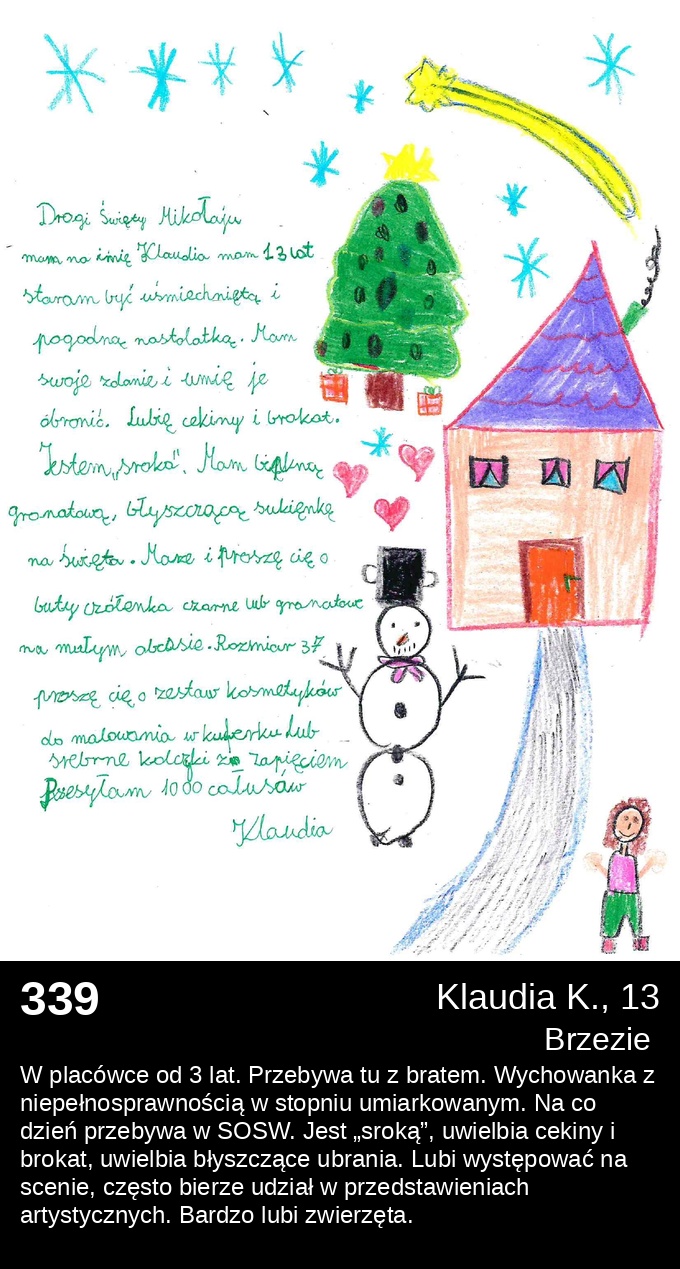 Drogi Święty Mikołaju
mam na imię Klaudia mam 13 lat
staram być uśmiechniętą i
pogodną nastolatką. Mam
swoje zdanie i umię je
obronić. Lubię cekiny i brokat.
Jestem „sroka". Mam piękną
granatową, błyszczącą sukienkę
na święta. Marzę i proszę cię o
buty czółenka czarne lub granatowe
na małym obcasie. Rozmiar 37
proszę cię o zestaw kosmetyków
do malowania w kuferku lub
srebrne kolczyki z zapięciem
Przesyłam 1000 całusów
Klaudia
339
Klaudia K., 13
Brzezie
W placówce od 3 lat. Przebywa tu z bratem. Wychowanka z
niepełnosprawnością w stopniu umiarkowanym. Na co
dzień przebywa w SOSW. Jest „sroką”, uwielbia cekiny i
brokat, uwielbia błyszczące ubrania. Lubi występować na
scenie, często bierze udział w przedstawieniach
artystycznych. Bardzo lubi zwierzęta.